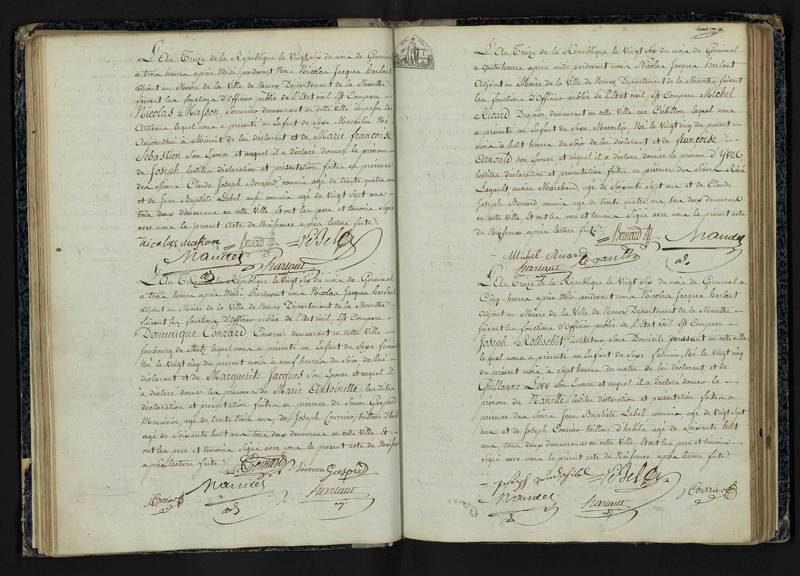 L'An Treize de la République le Vingt Six du mois de Germinal
a trois heures après Midi pardevant Nous Nicolas Jacques harlaut
adjoint au Maire de la Ville de Nancy, Département de la Meurthe
faisant les fonctions d'Officier public de l'Etat civil Est Comparu
Nicolas Masson demeurant en cette ville
lequel nous a présenté un Enfant de Sexe Masculin Né
Aujourdhui a Minuit de lui déclarant et de Marie françoise
Sébastien son Epouse et auquel il a déclaré donner le prénom
de Joseph lesdites déclaration et présentation faites en présence
des Sieurs Claude Joseph Bernard, commis agé de trente quatre ans
et de Jean Baptiste Lebel aussi commis agé de Vingt Sept ans
tous deux demeurans en cette Ville Et ont les pere et temoins Signé
avec nous le present Acte de Naissance après lecture faite.
Nicolas masson Bernard Lebel
Mandel harlaut
adj
L'An Treize de la République le Vingt Six du mois de Germinal
a trois heures après Midi Pardevant nous Nicolas Jacques harlaut
adjoint au Maire de la Ville de Nancy Département de la Meurthe
faisant les fonctions d'Officier public de l'Etat civil Est Comparu
Dominique Conrard demeurant en cette Ville
faubourg de Metz lequel nous a présenté un Enfant du Sexe feminin
Né le Vingt cinq du présent mois à neuf heures du Soir de lui
déclarant et de Marguerite Jacques Son Epouse et auquel il
a déclaré donner les prénoms de Marie Antoinette lesdites
déclaration et présentation faites en présence de Simon Gaspard
agé de trente trois ans et Joseph Courrier, tailleur d'habits
agé de Soixante huit ans tous deux demeurans en cette Ville Et
ont les pere et temoins Signé avec nous le present acte de Naissance
après lecture faite
Simon Gaspard
Mandel harlaut
Courrier adj
L'An Treize de la République le Vingt Six du mois de Germinal
a quatre heures après midi pardevant nous Nicolas Jacques harlaut
Adjoint au Maire de la Ville de Nancy Département de la Meurthe faisant
les fonctions d'Officier public de l'Etat civil Est Comparu Michel
Ricard demeurant en cette Ville rue Crébillon lequel nous
a présenté un Enfant du Sexe Masculin, Né le Vingt cinq du présent
mois à huit heures du Soir de lui déclarant et de françoise
son Epouse et auquel il a déclaré donner le prénom d'Yves
lesdites déclaration et présentation faites en présence des Sieurs René
ancien Marchand, agé de Soixante Sept ans et de Claude
Joseph Bernard, commis agé de trente quatre ans tous deux demeurans
en cette Ville, Et ont les pere et temoins Signé avec nous le present acte
de Naissance, après lecture faite.
Bernard Mandel
Michel Ricard
harlaut adj
L'An Treize de la République le Vingt Six du mois de Germinal a
Cinq heures après Midi pardevant nous Nicolas Jacques harlaut
Adjoint au Maire de la Ville de Nancy, Département de la Meurthe
faisant les fonctions d'Officier public de l'Etat civil Est Comparu
Joseph instituteur en cette ville
lequel nous a présenté un Enfant de Sexe féminin, Né le Vingt cinq
du présent mois à Sept heures du matin de lui déclarant et de
Guillanne Lévy son Epouse et auquel il a déclaré donner le
prénom de Nanette lesdites déclaration et présentation faites en
présence des Sieurs Jean Baptiste Lebel commis agé de Vingt Sept
ans et de Joseph Courrier tailleur d'habits agé de Soixante huit
ans tous deux demeurans en cette Ville Et ont les pere et temoins
Signé avec nous le present acte de Naissance après lecture faite.
Lebel
Mandel harlaut Courrier
adj